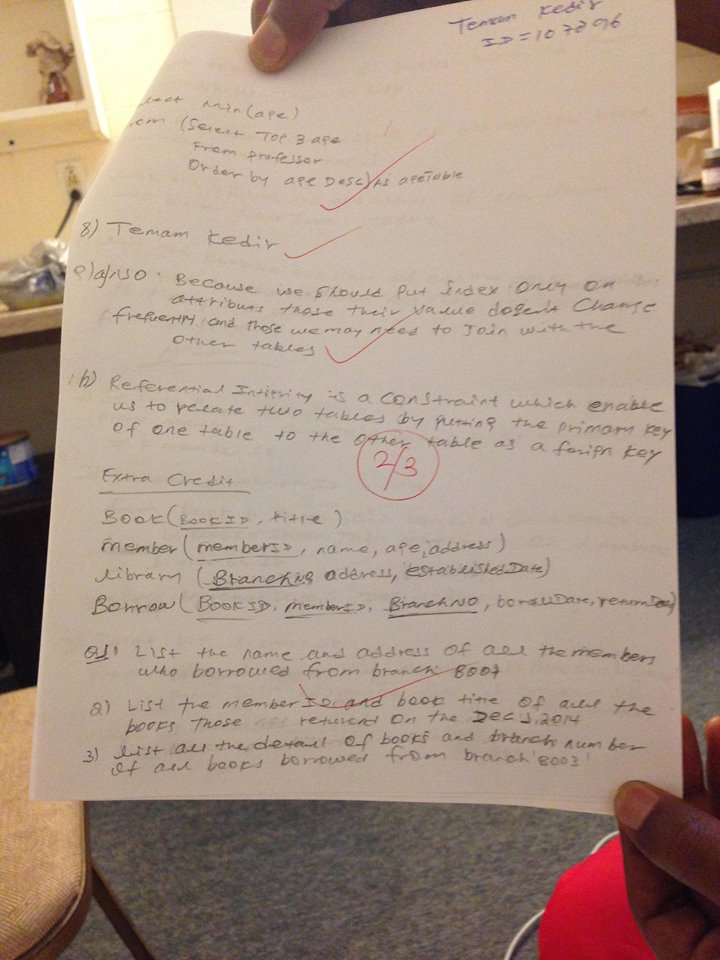 Temam Kedir
ID = 107296
lect Min(age)
rom (Select Top 3 age
From professor
Order by age Desc) As ageTable
8) Temam Kedir
9) a) NO. Because we should put index only on
attributs those their value dosen't Change
frequently and those we may need to Join with the
Other tables
b) Referential Intigrity is a constraint which enable
us to relate two tables by putting the primary key
of one table to the other table as a forign key
2/3
Extra Credit
Book (BookID, title)
member (memberID, name, age, address)
library (BranchNo, address, establishedDate)
Borrow (BookID, memberID, BranchNO, borowDate, returnDate)
Q1) List the name and address of all the members
who borrowed from branch
2) List the member ID and book title of all the
books those returend on the Dec 3, 2014
3) list all the detail of books and branch number
of all books borrowed from branch 'B003'